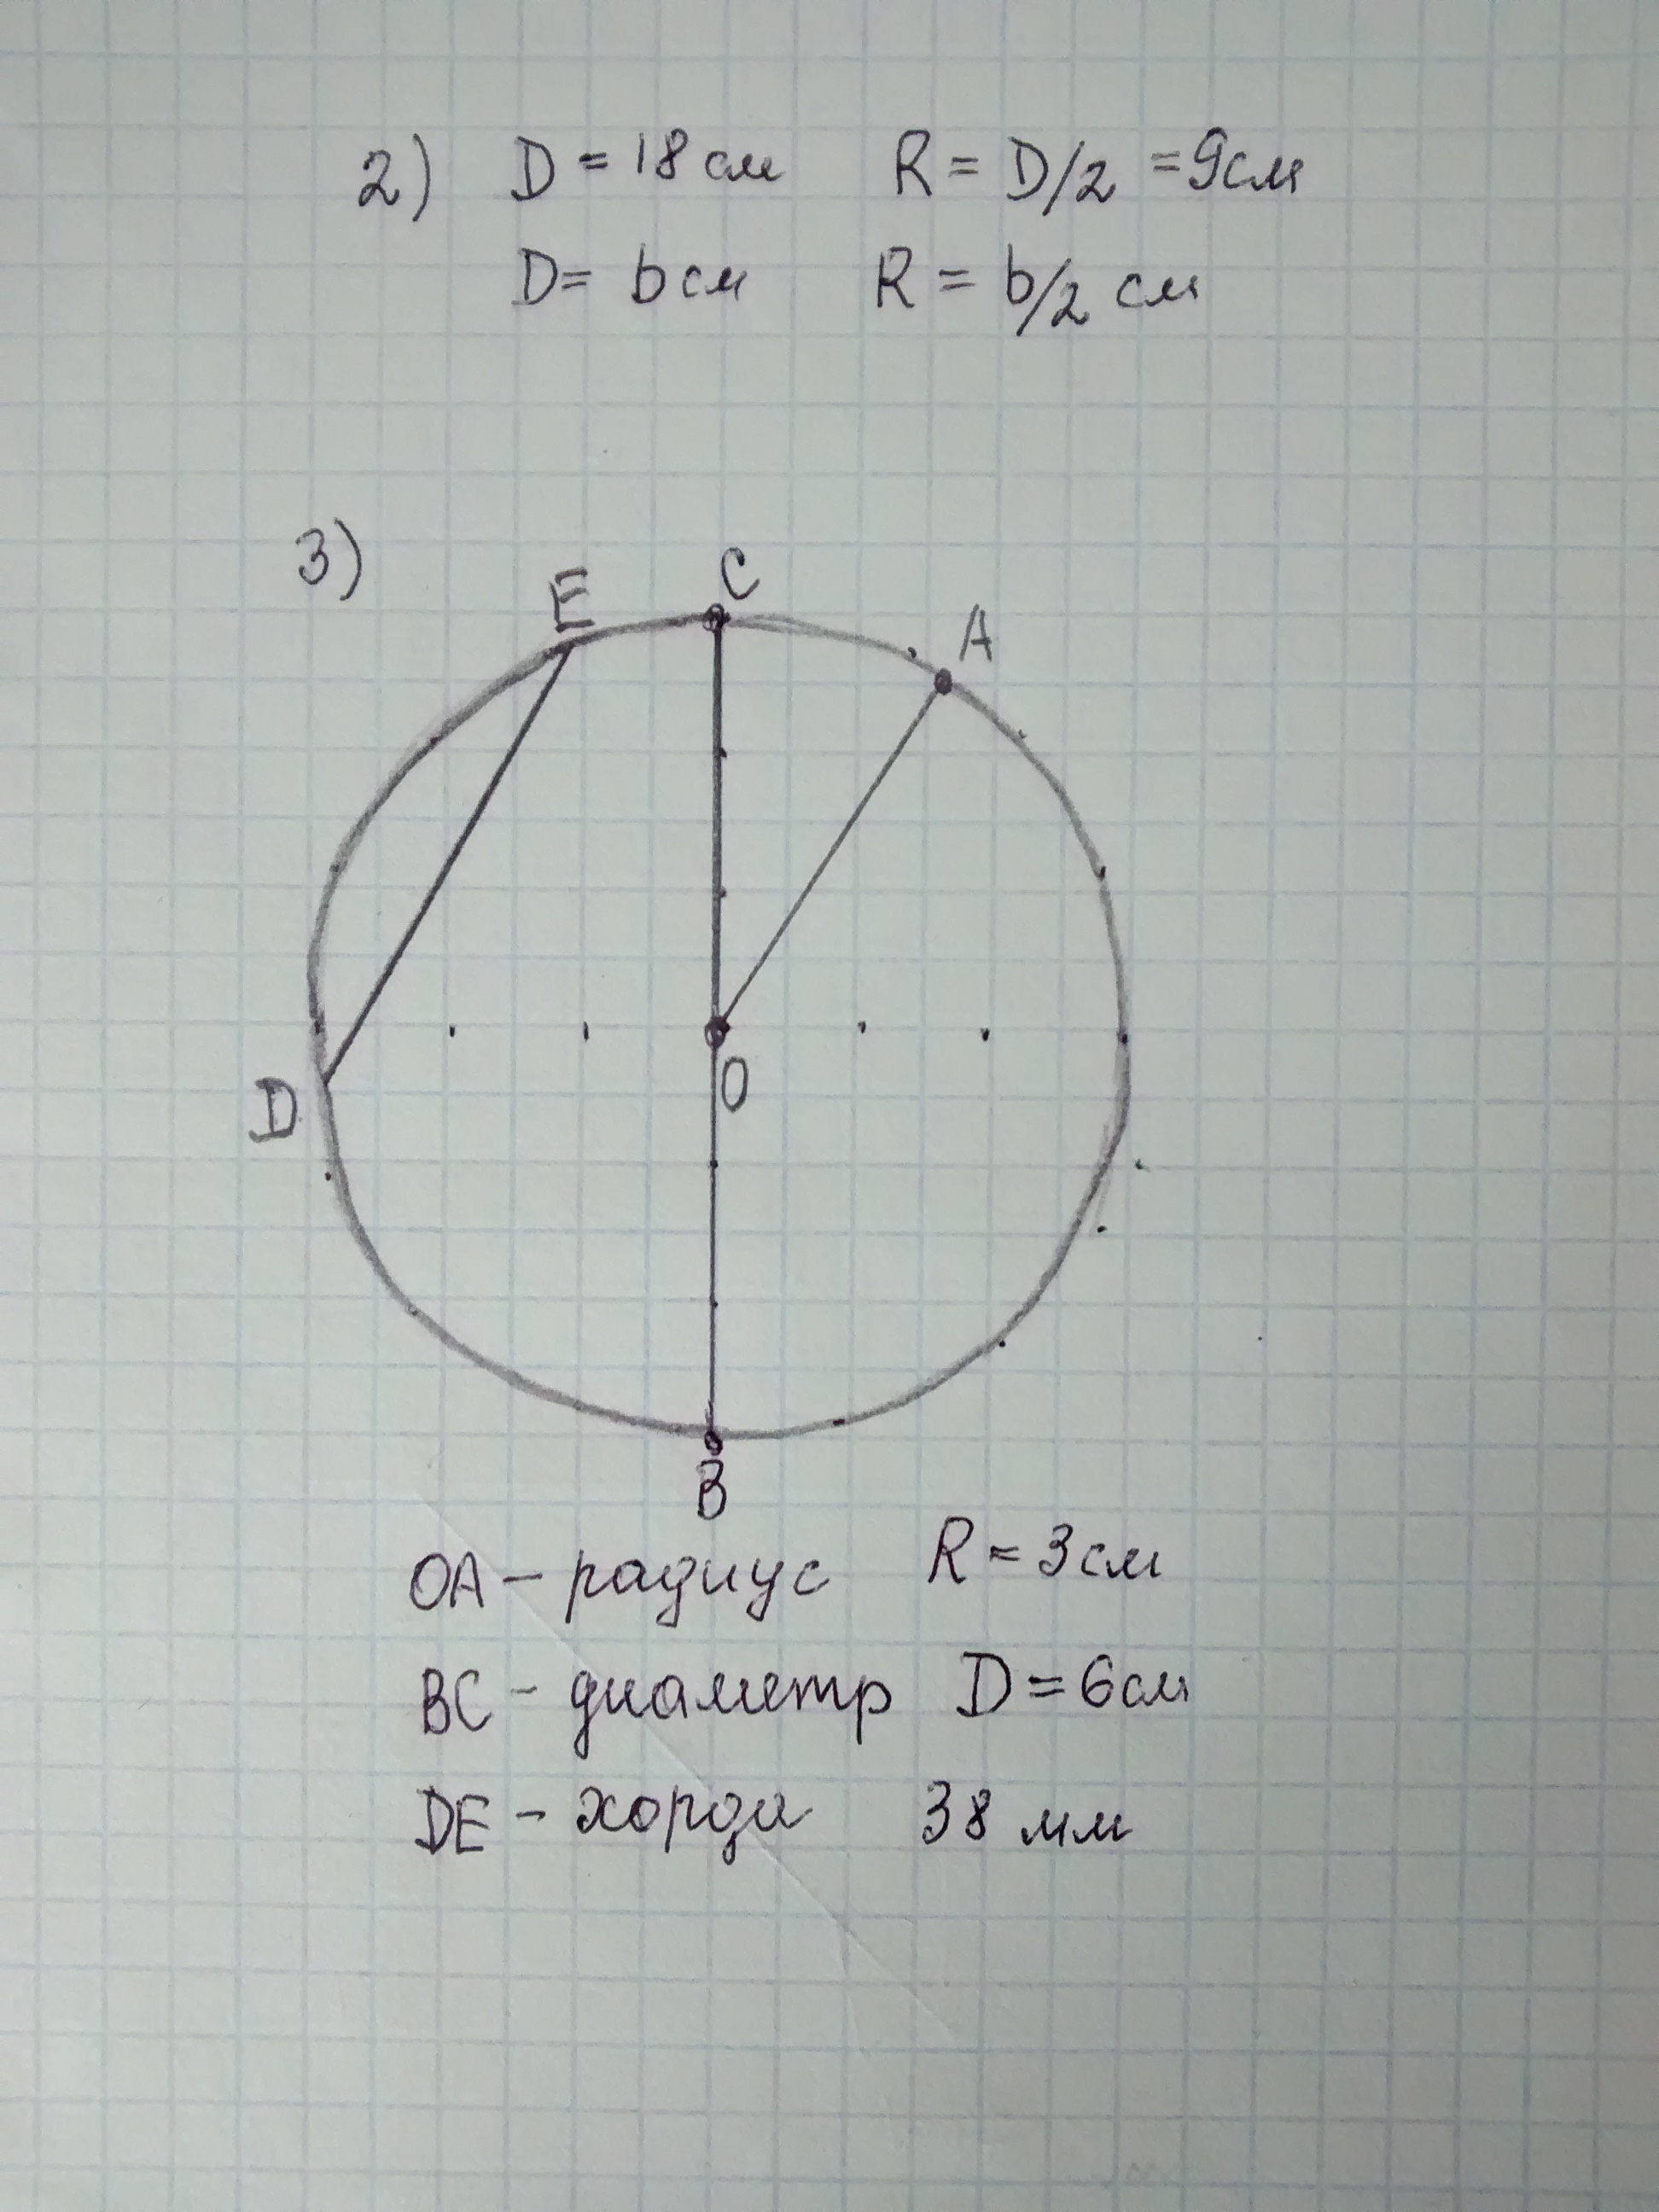 2) D = 18 см R = D/2 = 9см
D = b см R = b/2 см
3)
E C A
D O
B
OA – радиус R = 3см
BC – диаметр D = 6см
DE – хорда 38 мм